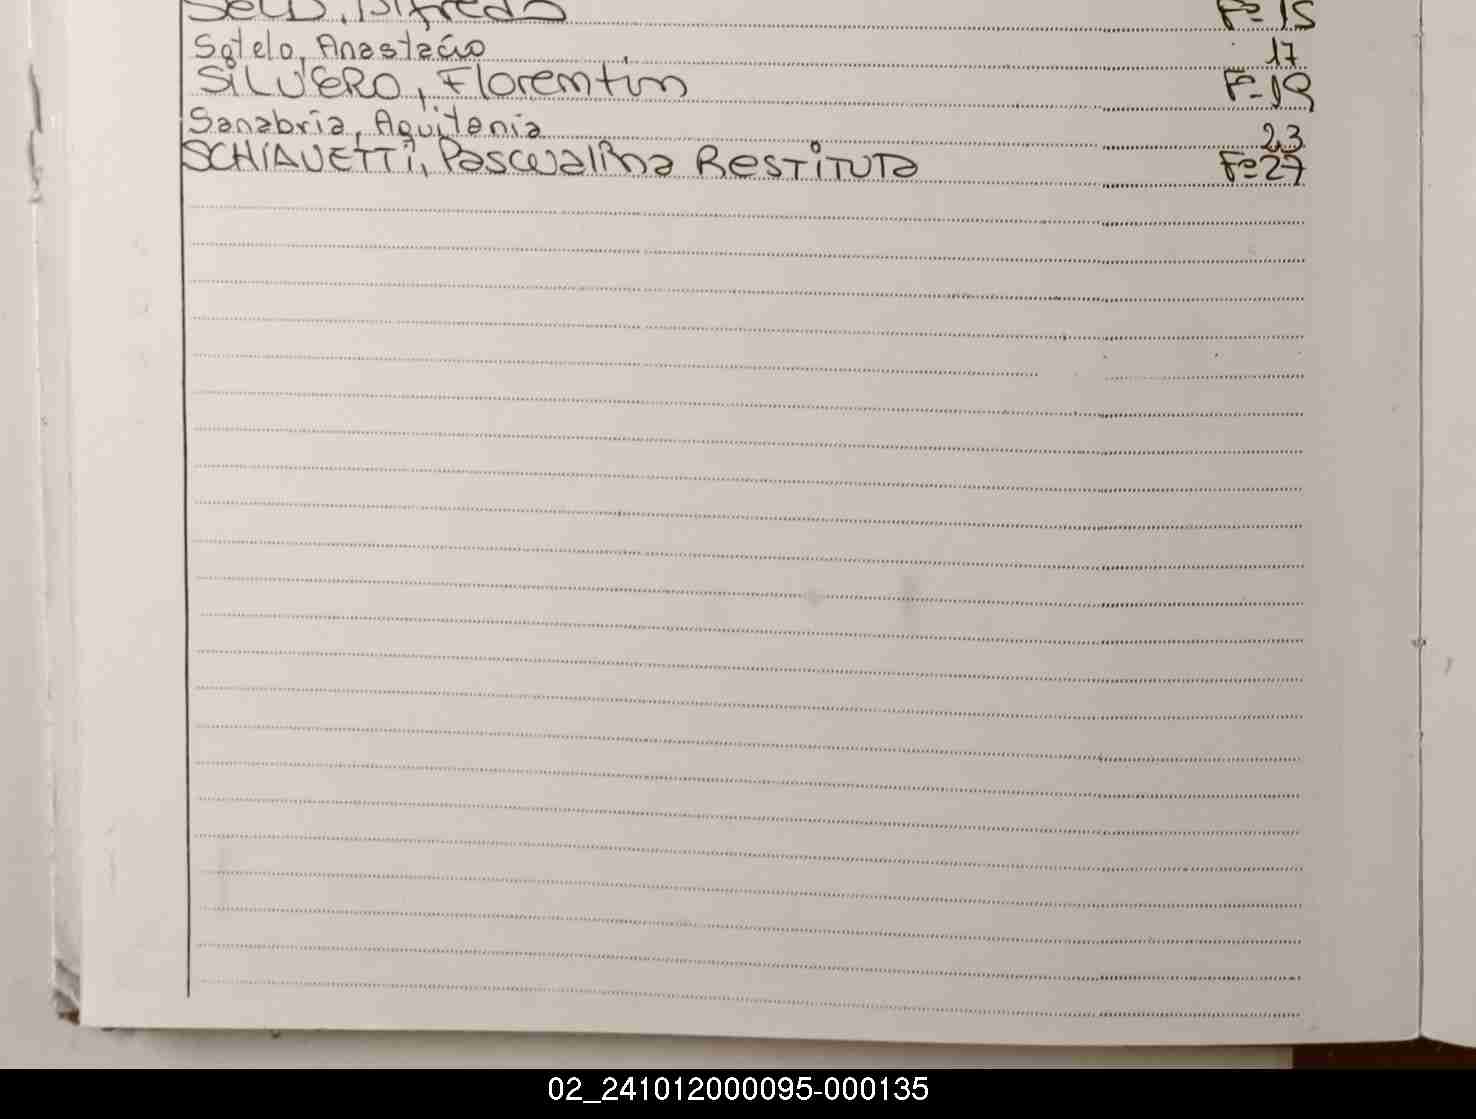 Alfredo Fº 15
Sotelo, Anastacio 17
SILVERO, Florentin Fº 19
Sanabria, Aquitania 23
SCHIAVETTI, Pascualina RESTITUTA Fº 27
02_241012000095-000135